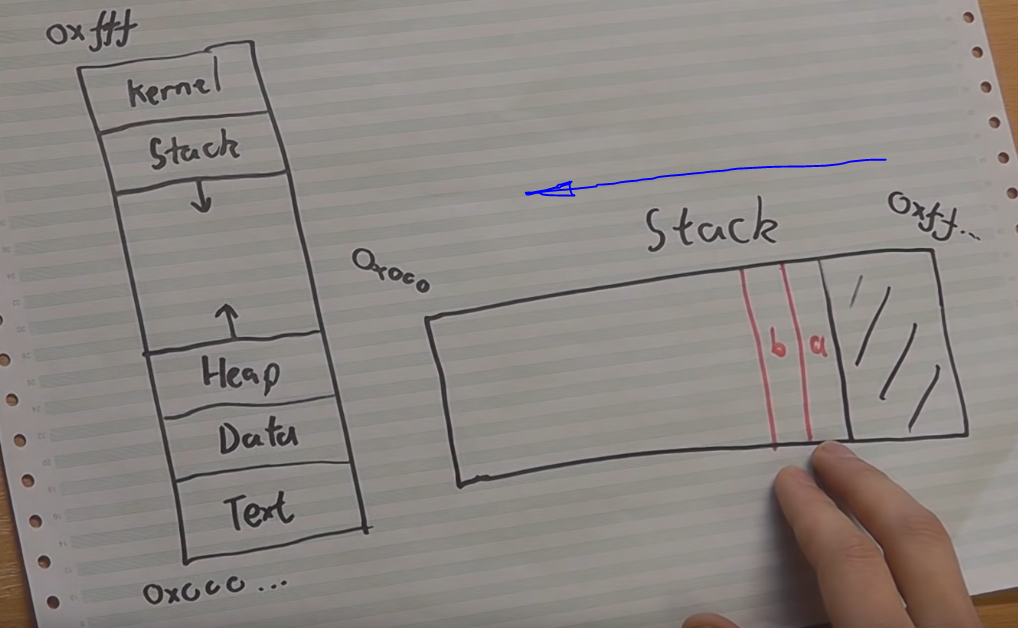 0xfff
Kernel
Stack
Heap
Data
Text
0x000...
Stack
0xff...
0x000
b
a